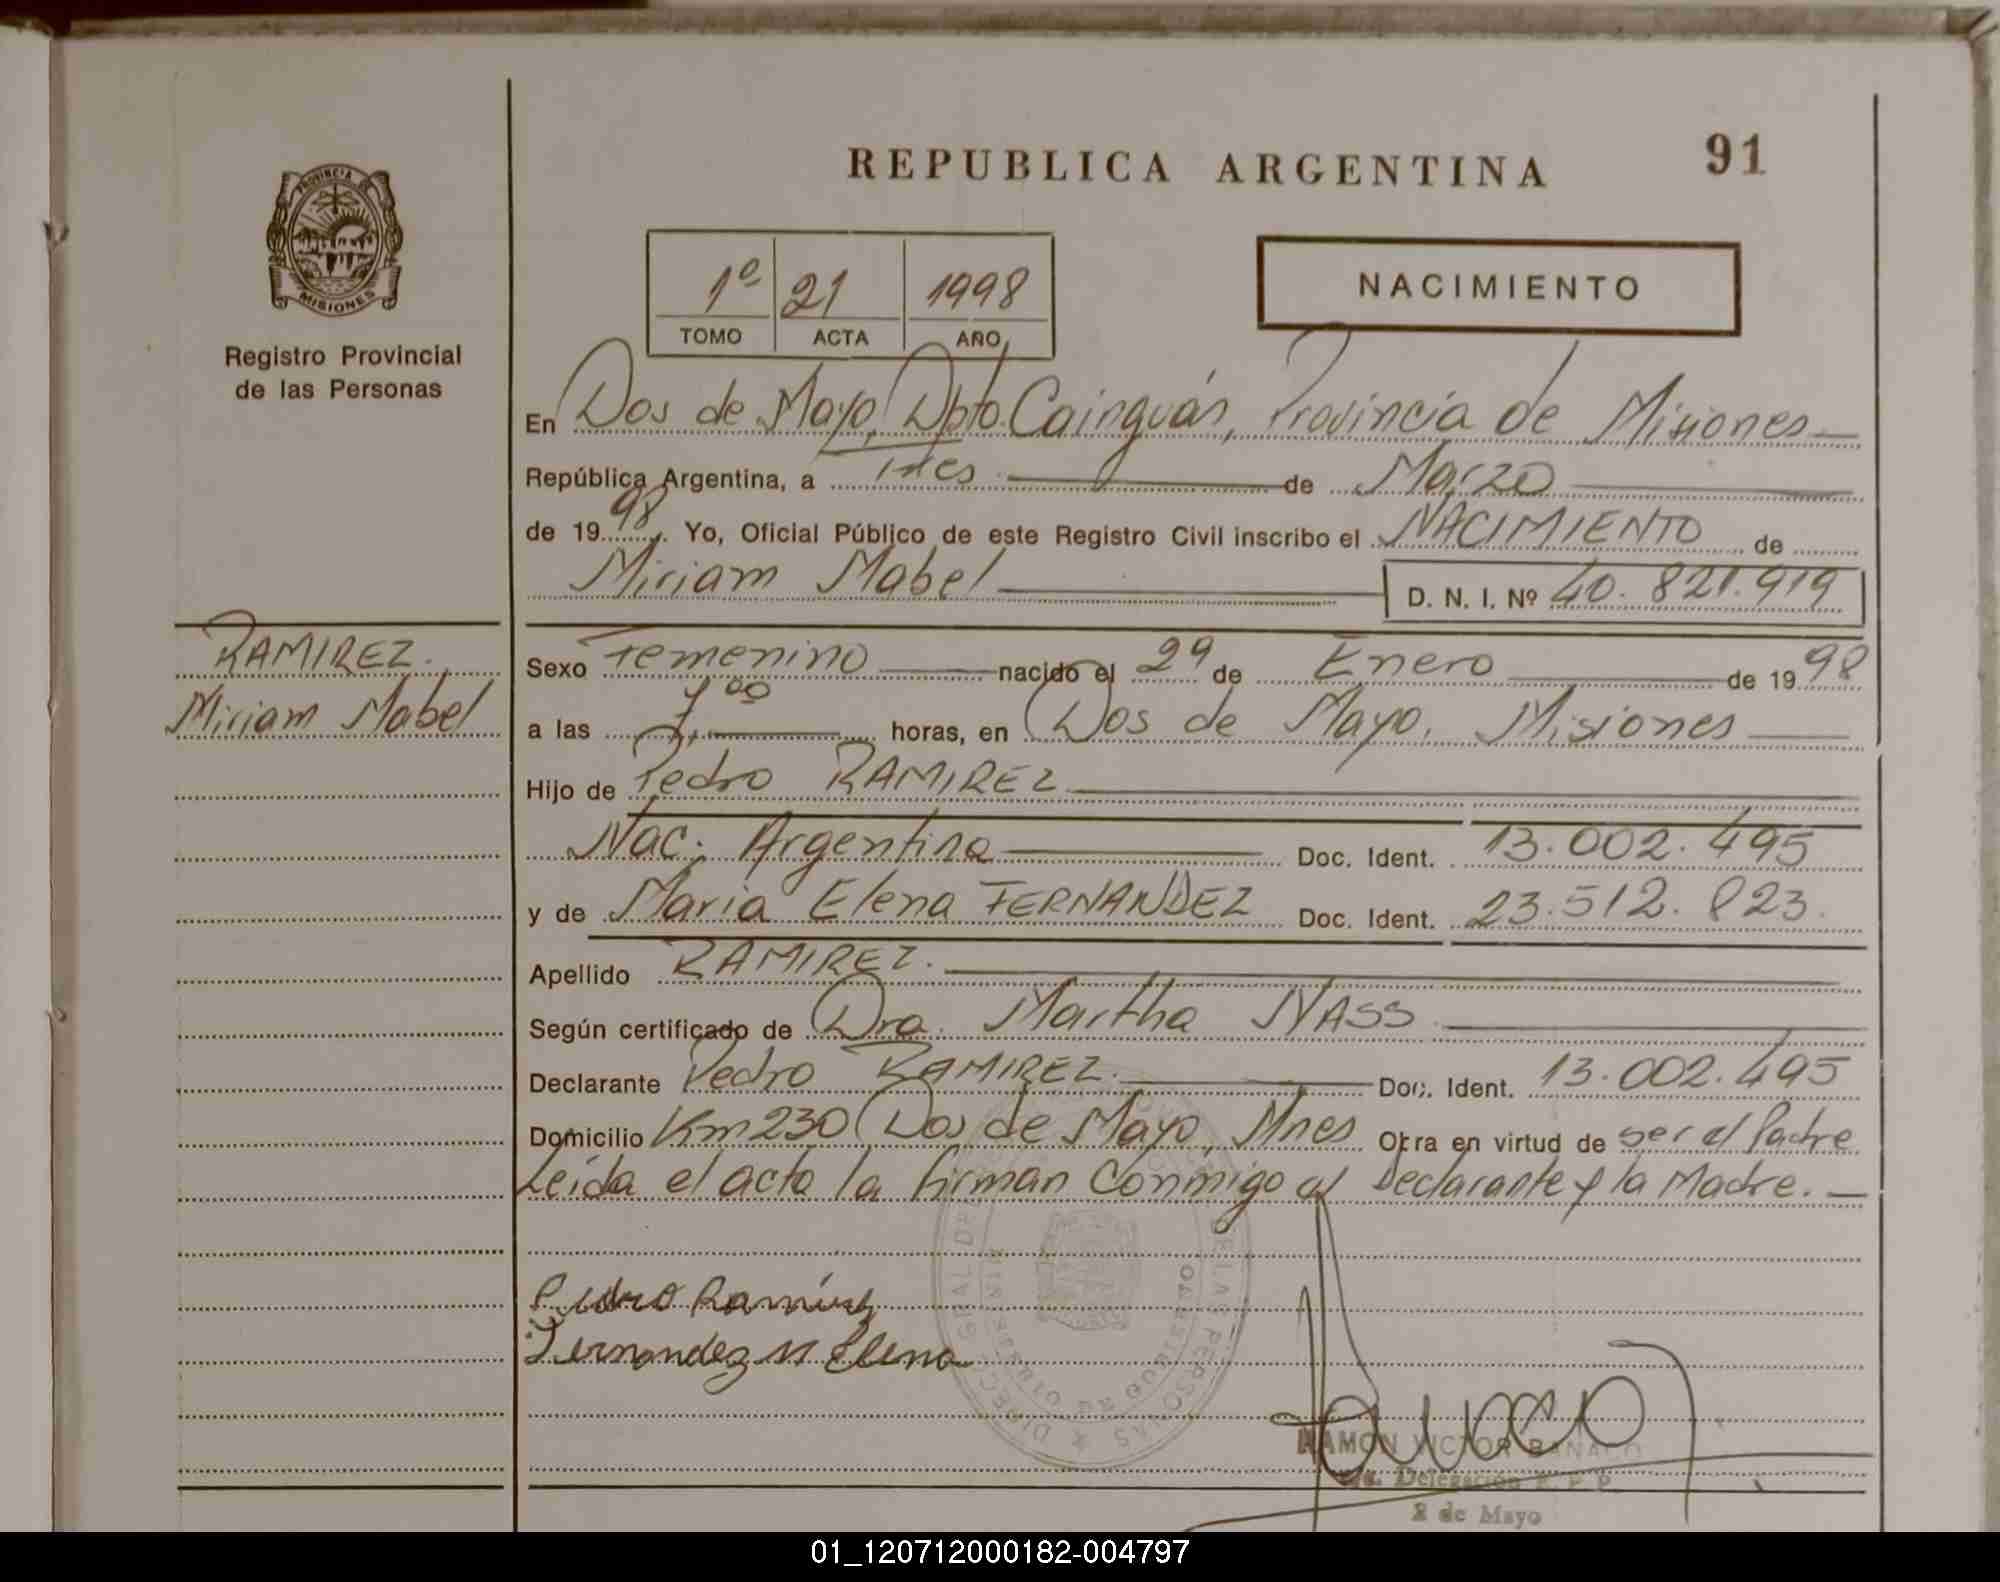 REPUBLICA ARGENTINA
91
PROVINCIA DE
MISIONES
Registro Provincial
de las Personas
1º 21 1998
TOMO ACTA AÑO
NACIMIENTO
En Dos de Mayo, Dpto. Cainguás, Provincia de Misiones
República Argentina, a tres de Marzo
de 1998. Yo, Oficial Público de este Registro Civil inscribo el NACIMIENTO de
Miriam Mabel D. N. I. Nº 40.821.919
RAMIREZ.
Miriam Mabel
Sexo Femenino nacido el 29 de Enero de 1998
a las 7,00 horas, en Dos de Mayo, Misiones
Hijo de Pedro RAMIREZ
Nac. Argentina Doc. Ident. 13.002.495
y de Maria Elena FERNANDEZ Doc. Ident. 23.512.823.
Apellido RAMIREZ.
Según certificado de Dra. Martha NASS
Declarante Pedro RAMIREZ. Doc. Ident. 13.002.495
Domicilio Km 230 Dos de Mayo, Mnes Obra en virtud de ser el Padre
Leída el acta la firman Conmigo el Declarante y la Madre.
Pedro Ramírez
Fernandez M Elena
RAMON VICTOR BANACO
Delegación R. P. P.
2 de Mayo
01_120712000182-004797